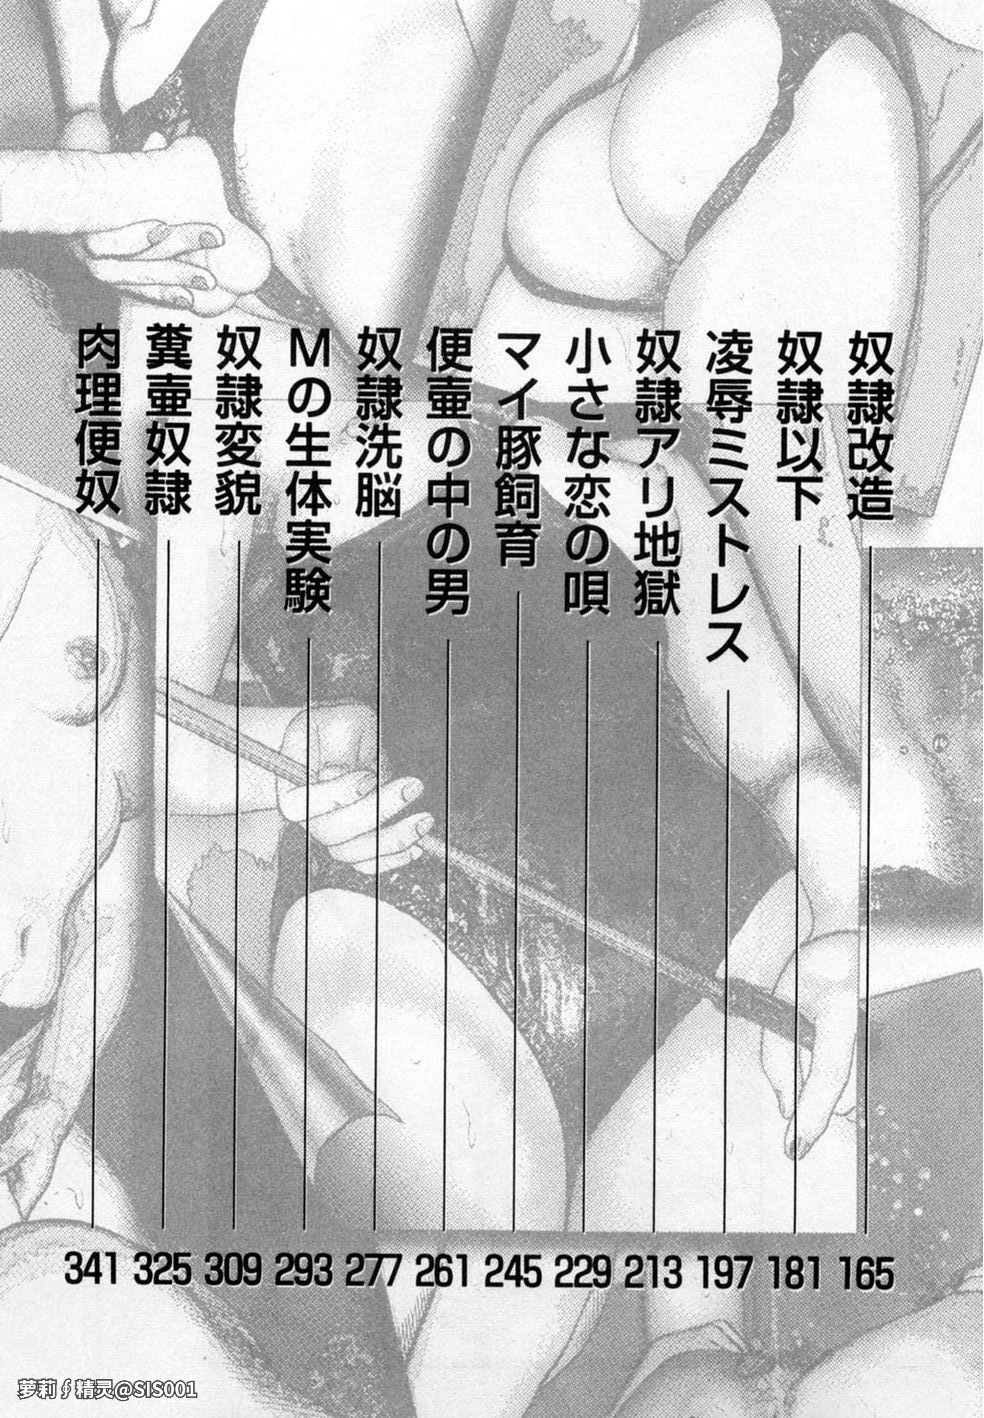 奴隷改造 165
奴隷以下 181
凌辱ミストレス 197
奴隷アリ地獄 213
小さな恋の唄 229
マイ豚飼育 245
便壷の中の男 261
奴隷洗脳 277
Mの生体実験 293
奴隷変貌 309
糞壷奴隷 325
肉理便奴 341
萝莉∮精灵@SIS001